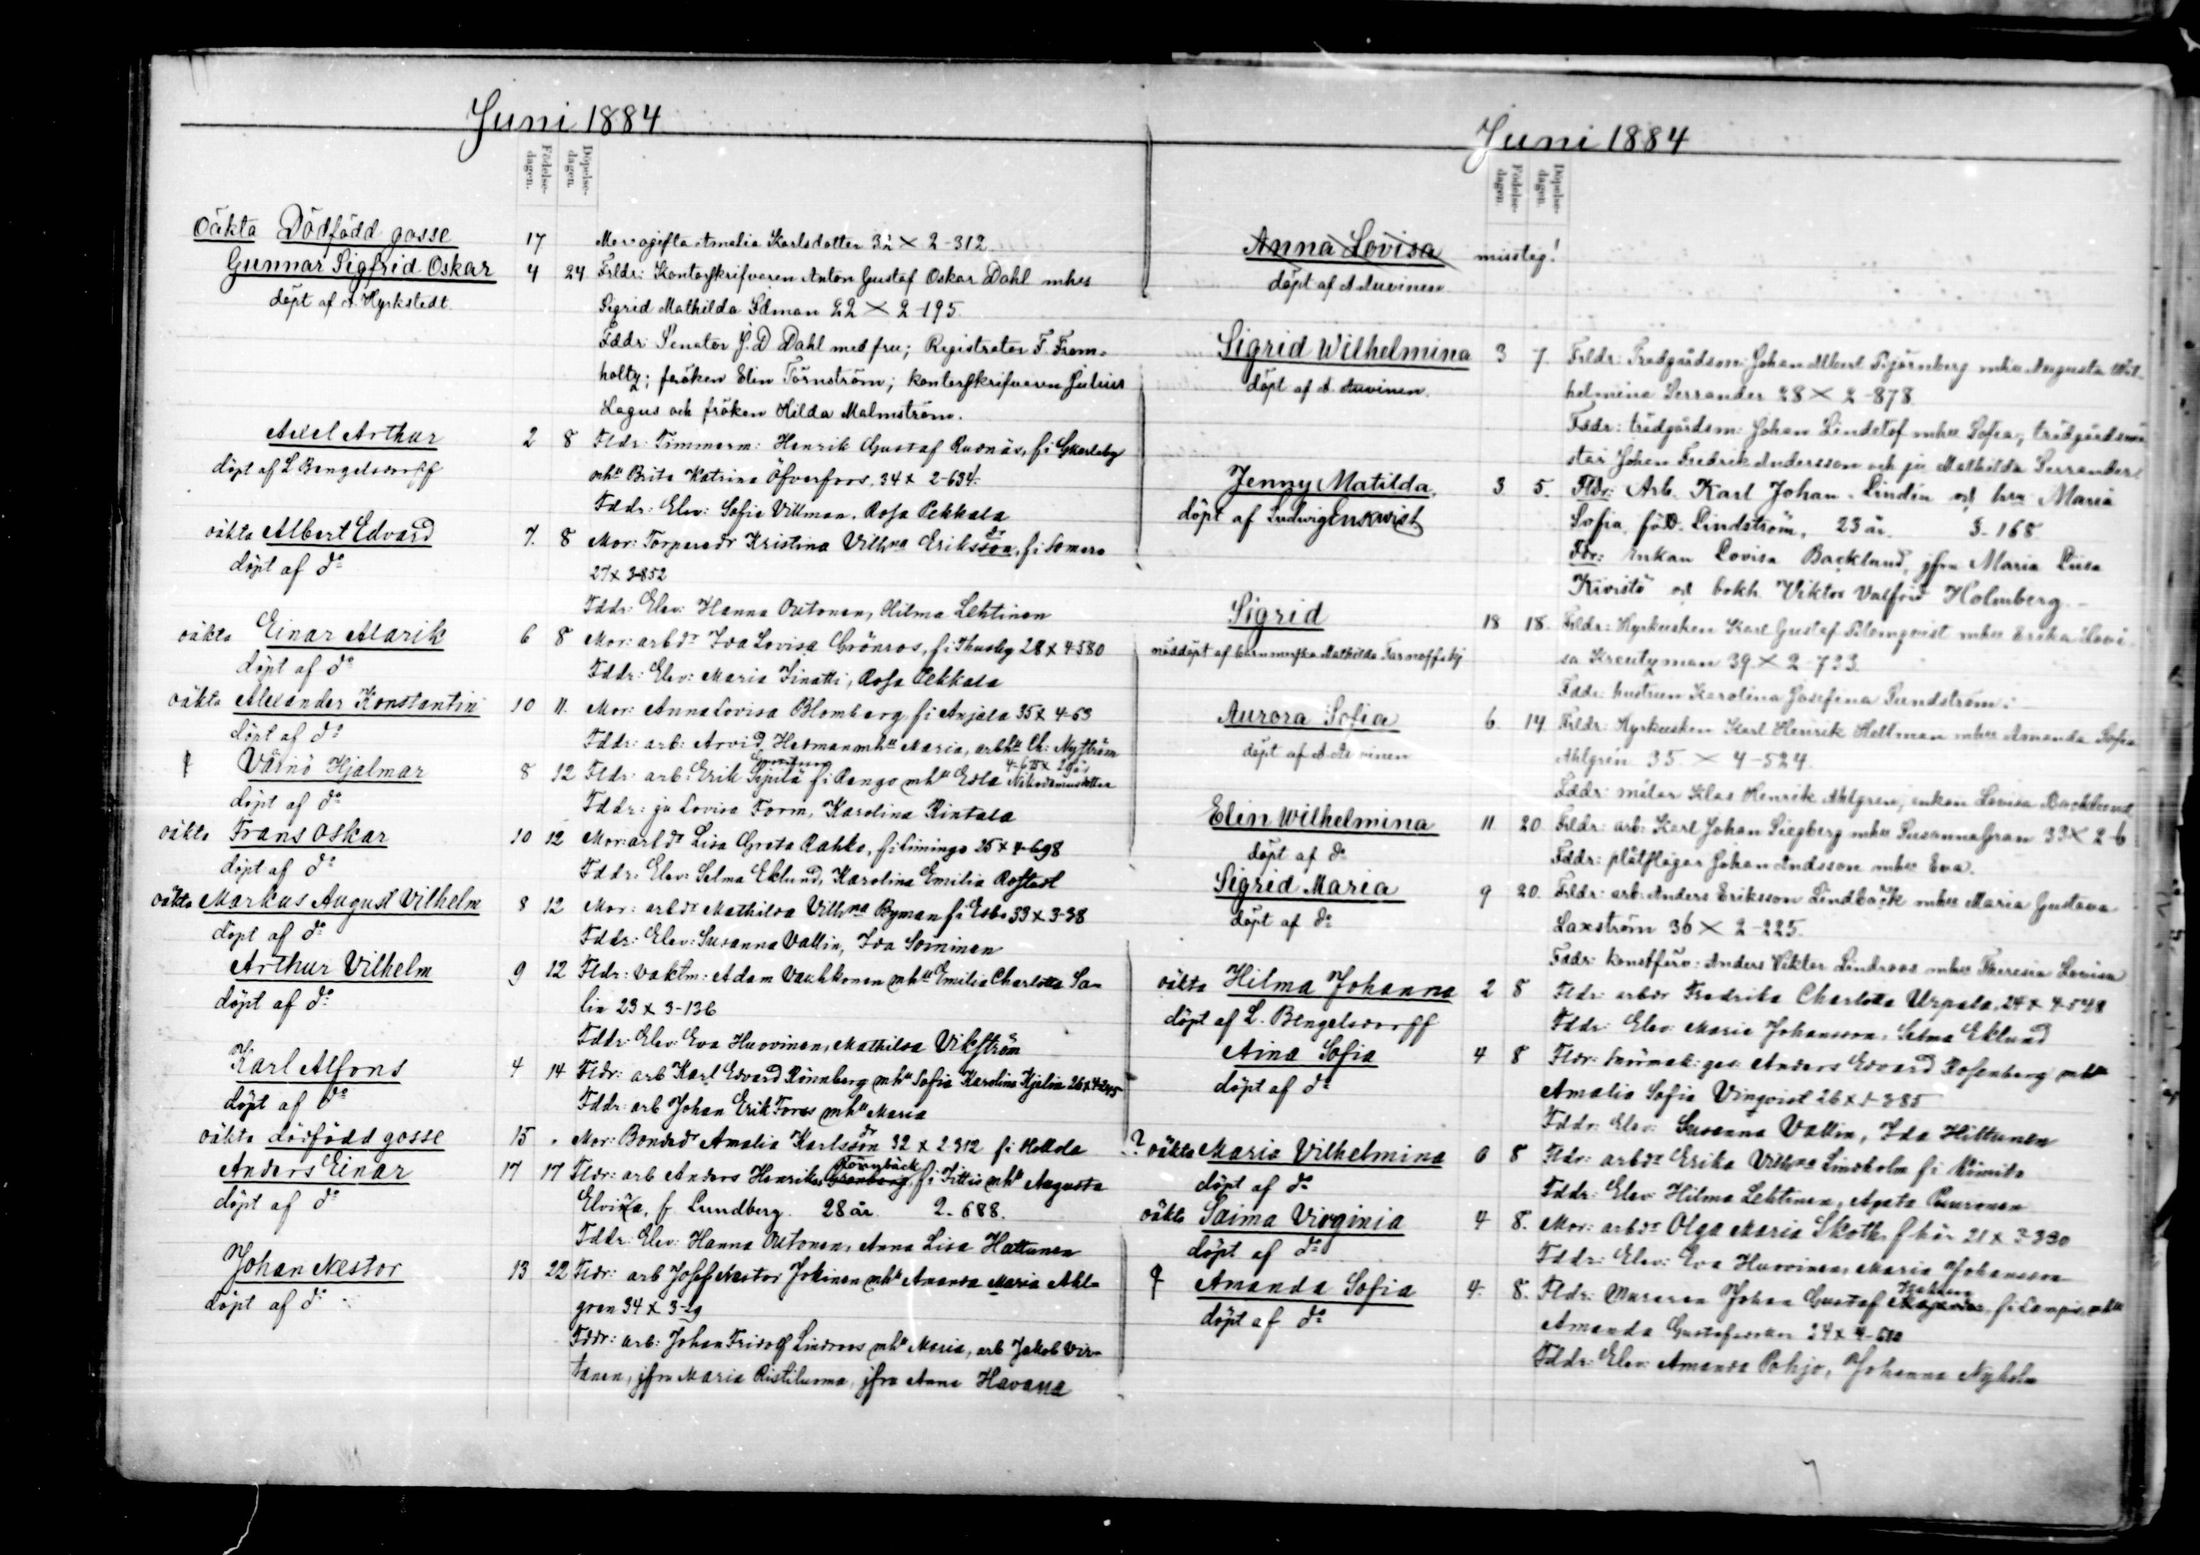 Juni 1884
Födelse-dagen.
Döpelse-dagen.
oäkta Dödfödd gosse 17 Mor: ogifta Amalia Karlsdotter 32 × 2-312
Gunnar Sigfrid Oskar 4 24 Frldr: Kontorskrifvaren Anton Gustaf Oskar Dahl mhu
döpt af A. Hyrkstedt. Sigrid Mathilda Edman 22 × 2-195
Fddr: Senator J. D Dahl med fru; Registrator F. From-
holtz; fröken Elin Törnström; kontorskrifvaren Julius
Lagus och fröken Hilda Malmström.
Axel Arthur 2 8 Fldr: Timmerm: Henrik Gustaf Rudnäs, f. i Gkarleby
döpt af L Bengelsdorff mhu Brita Katrina Öfverfors. 34 × 2-634.
Fddr: Elev: Sofia Villman. Rosa Pekkala
oäkta Albert Edvard 7. 8 Mor: Torparedr Kristina Vilhna Eriksson, f. i Somero
döpt af do 27 × 3-852
Fddr: Elev: Hanna Autonen, Hilma Lehtinen
oäkta Einar Alarik 6 8 Mor: arbdr Ida Lovisa Grönros, f. i Thusby 28 × 4-580
döpt af do Fddr: Elev: Maria Finatti, Rosa Pekkala
oäkta Alexander Konstantin 10 11. Mor: Anna Lovisa Blomberg f. i Anjala 35 × 4-63
döpt af do Fddr: arb: Arvid Hedman mhu Maria, arbhu Ch: Nyström
† Väinö Hjalmar 8 12 Fldr: arb: Erik Sipilä f. i Pengo mhu Edla Nikodemusdotter
döpt af do Fddr: ju Lovisa Form, Karolina Rintala
oäkta Frans Oskar 10 12 Mor: arbdr Lisa Greta Rahko, f. i Liminga 25 × 4-698
döpt af do Fddr: Elev: Selma Eklund, Karolina Emilia Rostedt
oäkta Markus August Vilhelm 8 12 Mor: arbdr Mathilda Vilhna Byman f. i Esbo 33 × 3-38
döpt af do Fddr: Elev: Susanna Vallin, Ida Sominen
Arthur Vilhelm 9 12 Fldr: Vaktm: Adam Vauhkonen mhu Emilia Charlotta Sa-
döpt af do lin 23 × 3-136
Fddr: Elev: Eva Huovinen, Mathilda Vikström
Karl Alfons 4 14 Fldr: arb Karl Edvard Rönnberg mhu Sofia Karolina Kjelin 26 × 4-245
döpt af do Fddr: arb Johan Erik Forss mhu Maria
oäkta dödfödd gosse 15 . Mor: Bondedr Amalia Karlsson 32 × 2-312 f. i Hollola
Anders Einar 17 17 Fldr: arb Anders Henriks Törnbäck f. i Tittis mhu Augusta
döpt af do Elvira, f. Lundberg. 28 år. 2-688.
Fddr: Elev: Hanna Autonen, Anna Lisa Hattunen
Johan Nestor 13 22 Fldr: arb Josef Nestor Jokinen mhu Amanda Maria Ahl-
döpt af do gren 34 × 3-29
Fddr: arb: Johan Fridolf Lindroos mhu Maria, arb Jakob Vir-
tanen, jfru Maria Ristiluoma, jfru Anna Havana
Juni 1884
Födelse-dagen
Döpelse-dagen
Anna Lovisa misstag!
döpt af A Auvinen.
Sigrid Wilhelmina 3 7. Frldr: Trädgårdsm: Johan Albert Björnberg mhu Augusta Wil-
döpt af A. Auvinen. helmina Serrander 28 × 2-878.
Fddr: trädgårdsm: Johan Lindelöf mhu Sofia; trädgårdsmä
star Johan Fredrik Andersson och ju Mathilda Serrander
Jenny Matilda. 3. 5. Fldr: Arb. Karl Johan Lindén och hu Maria
döpt af Ludvig Enqvist Sofia, född Lindström, 23 år. 3-168
Fdr: Enkan Lovisa Backlund, jfru Maria Liisa
Kivistö och bokh. Viktor Valfrid Holmberg.
Sigrid 18 18. Frldr: Hyrkusken Karl Gustaf Blomqvist mhu Erika Lovi-
nöddöpt af barnmorska Mathilda Tarnoffskij sa Kreutzman 39 × 2-723.
Fddr: hustrun Karolina Josefina Sundström.
Aurora Sofia 6. 14 Frldr: Hyrkusken Karl Henrik Hellman mhu Amanda Sofia
döpt af A Auvinen Ahlgrén 35 × 4-524.
Fddr: målar Klas Henrik Ahlgren, enkan Lovisa Backlund
Elin Wilhelmina 11 20. Frldr: arb: Karl Johan Siegberg mhu Susanna Gran 33 × 2-6
döpt af do Fddr: plåtslagar Johan Andsson mhu Eva.
Sigrid Maria 9 20. Frldr: arb: Anders Eriksson Lindbäck mhu Maria Gustava
döpt af do Laxström 36 × 2-225.
Fddr: konstförv: Anders Viktor Lindroos mhu Theresia Lovisa
oäkta Hilma Johanna 2 8 Fldr: arbdr Fredrika Charlotta Urpala, 24 × 4-548
döpt af L. Bengelsdorff Fddr: Elev: Maria Johansson, Selma Eklund
Aina Sofia 4 8 Fldr: snörmak: ges: Anders Edvard Rosenberg mhu
döpt af do Amalia Sofia Vinqvist 26 × 1-385
Fddr: Elev: Susanna Vallin, Ida Hiltunen
? oäkta Maria Vilhelmina 6 8 Fldr: arbdr Erika Vilhna Lindholm f. i Kimito
döpt af do Fddr: Elev: Hilma Lehtinen, Agata Puuronen
oäkta Saima Virginia 4 8. Mor: arbdr Olga Maria Skoth f. här 21 × 3-330
döpt af do Fddr: Elev: Eva Huovinen, Maria Johansson
† Amanda Sofia 4. 8. Fldr: Muraren Johan Gustaf f. i Lampis mhu
döpt af do Amanda Gustafsdotter 24 × 4-610
Fddr: Elev: Amanda Pohjo, Johanna Nyholm